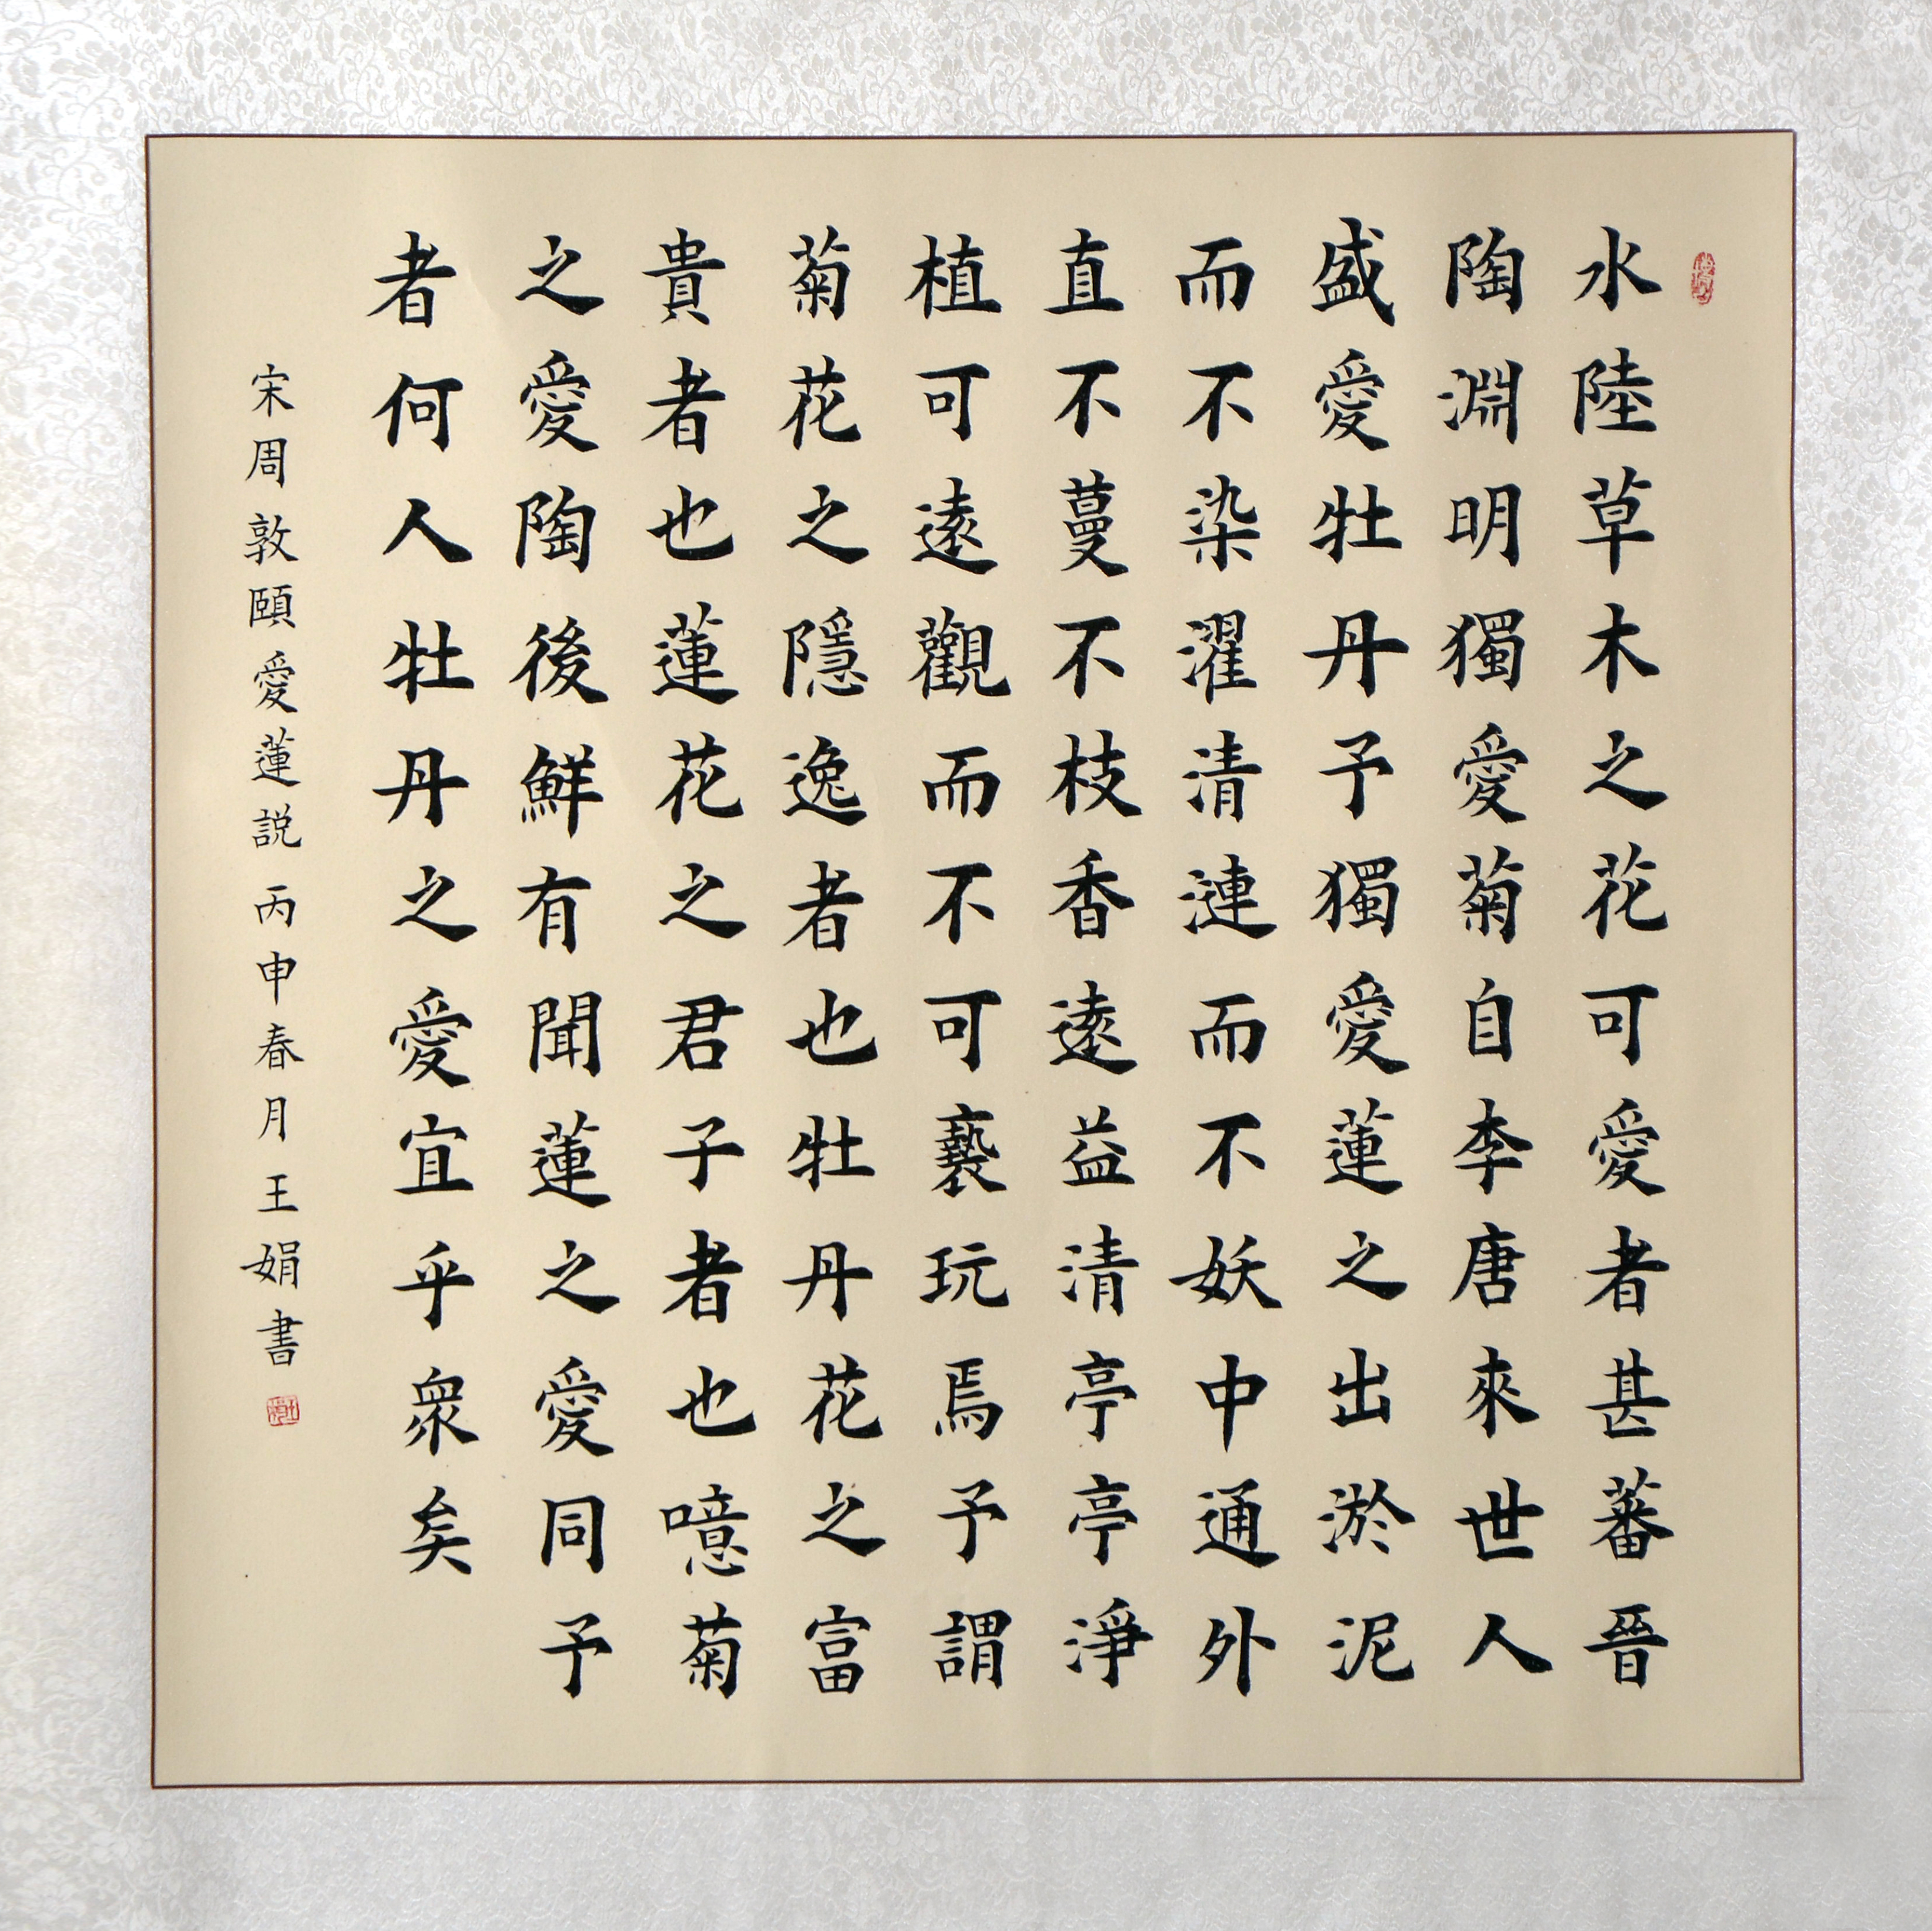 水陸草木之花可愛者甚蕃晉
陶淵明獨愛菊自李唐來世人
盛愛牡丹予獨愛蓮之出淤泥
而不染濯清漣而不妖中通外
直不蔓不枝香遠益清亭亭淨
植可遠觀而不可褻玩焉予謂
菊花之隱逸者也牡丹花之富
貴者也蓮花之君子者也噫菊
之愛陶後鮮有聞蓮之愛同予
者何人牡丹之愛宜乎眾矣
宋周敦頤愛蓮説丙申春月王娟書